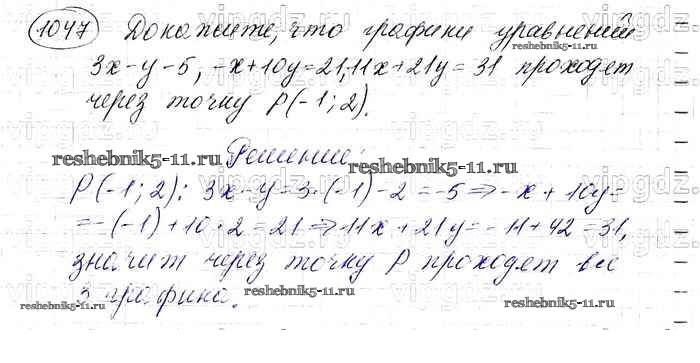 1047 Докажите, что графики уравнений
3x-y-5, -x+10y=21, 11x+21y=31 проходят
через точку P(-1; 2).
Решение:
P(-1; 2): 3x-y=3·(-1)-2=-5 ⇒ -x+10y=
=-(-1)+10·2=21 ⇒ 11x+21y=-11+42=31,
значит через точку P проходят все
3 графика.
reshebnik5-11.ru
reshebnik5-11.ru
reshebnik5-11.ru
reshebnik5-11.ru
reshebnik5-11.ru